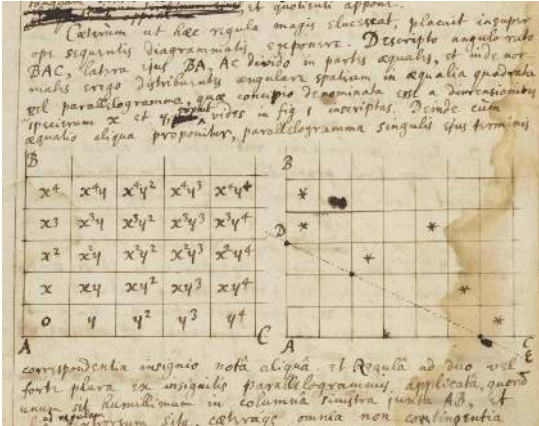 et quotienti appone.
Cæterùm ut hæc regula magis elucescat, placuit insuper
ope sequentis diagrammatis exponere. Descripto angulo recto
BAC, latera ejus BA, AC divido in partes æquales, et inde nor-
males erigo distribuentes angulare spatium in æqualia quadrata
vel parallelogramma, quæ concipio denominata esse a dimensionibus
specierum x et y, vides in fig 1 inscriptas. Deinde cum
æquatio aliqua proponitur, parallelogramma singulis ejus terminis
B
x4 x4y x4y2 x4y3 x4y4
x3 x3y x3y2 x3y3 x3y4
x2 x2y x2y2 x2y3 x2y4
x xy xy2 xy3 xy4
0 y y2 y3 y4
A C
B
*
* *
D
*
*
*
A C
E
correspondentia insignio notâ aliquâ et Regulâ ad duo vel
forte plura ex insignitis parallelogrammis applicatâ, quorum
unum sit humillimum in columnâ sinistra juxta AB, et
ad regulam
dextrorsum sita, cæteraque omnia non contingentia